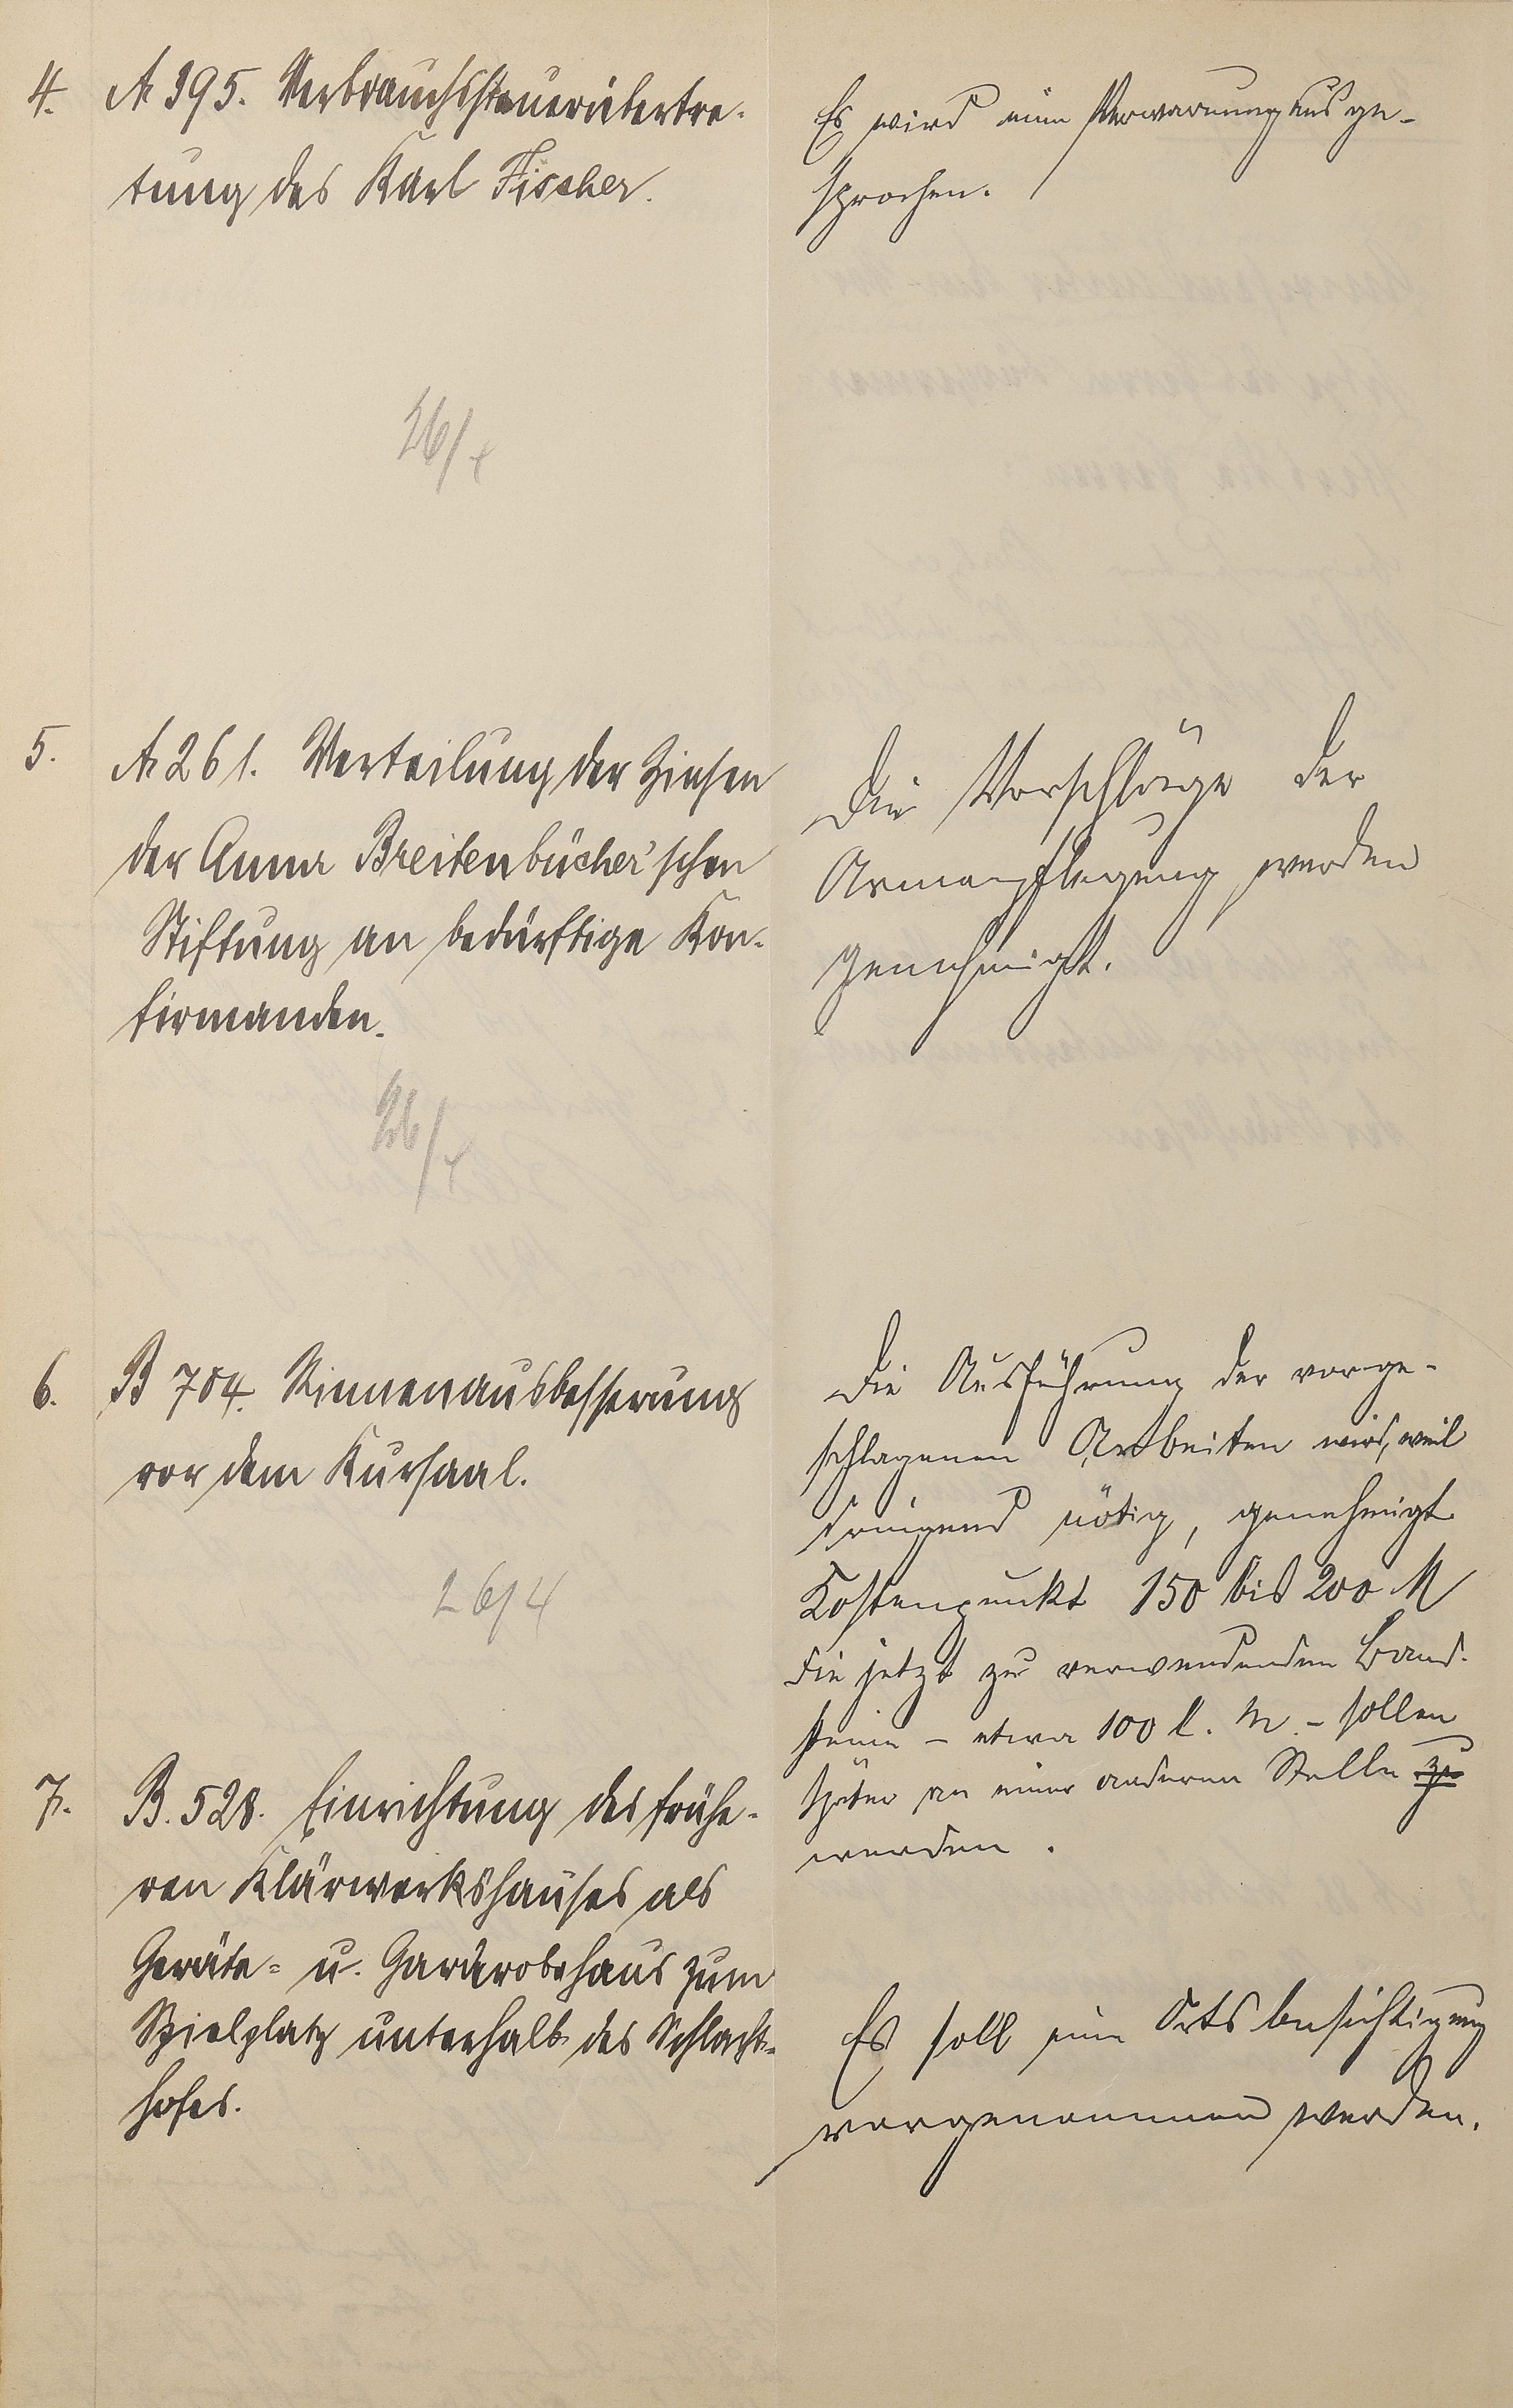 4. A 395. Verbrauchssteuerübertre-
tung des Karl Fischer.
Es wird eine Verwarnung ausge-
sprochen.
26/4
5. A 261. Verteilung der Zinsen
der Anna Breitenbücher'schen
Stiftung an bedürftige Kon-
firmanden.
Die Vorschläge der
Armenpflegung werden
genehmigt.
26/4
6. B 704. Rinnenausbesserung
vor dem Kursaal.
26/4
Die Ausführung der vorge-
schlagenen Arbeiten wird, weil
dringend nötig, genehmigt
Kostenpunkt 150 bis 200 M
Die jetzt zu verwendenden Band-
steine - etwa 100 l. M. - sollen
später an einer anderen Stelle zu
werden.
7. B. 528. Einrichtung des frühe-
ren Klärwerkshauses als
Geräte- u. Garderobehaus zum
Spielplatz unterhalb des Schlacht-
hofes.
Es soll eine Ortsbesichtigung
vorgenommen werden.